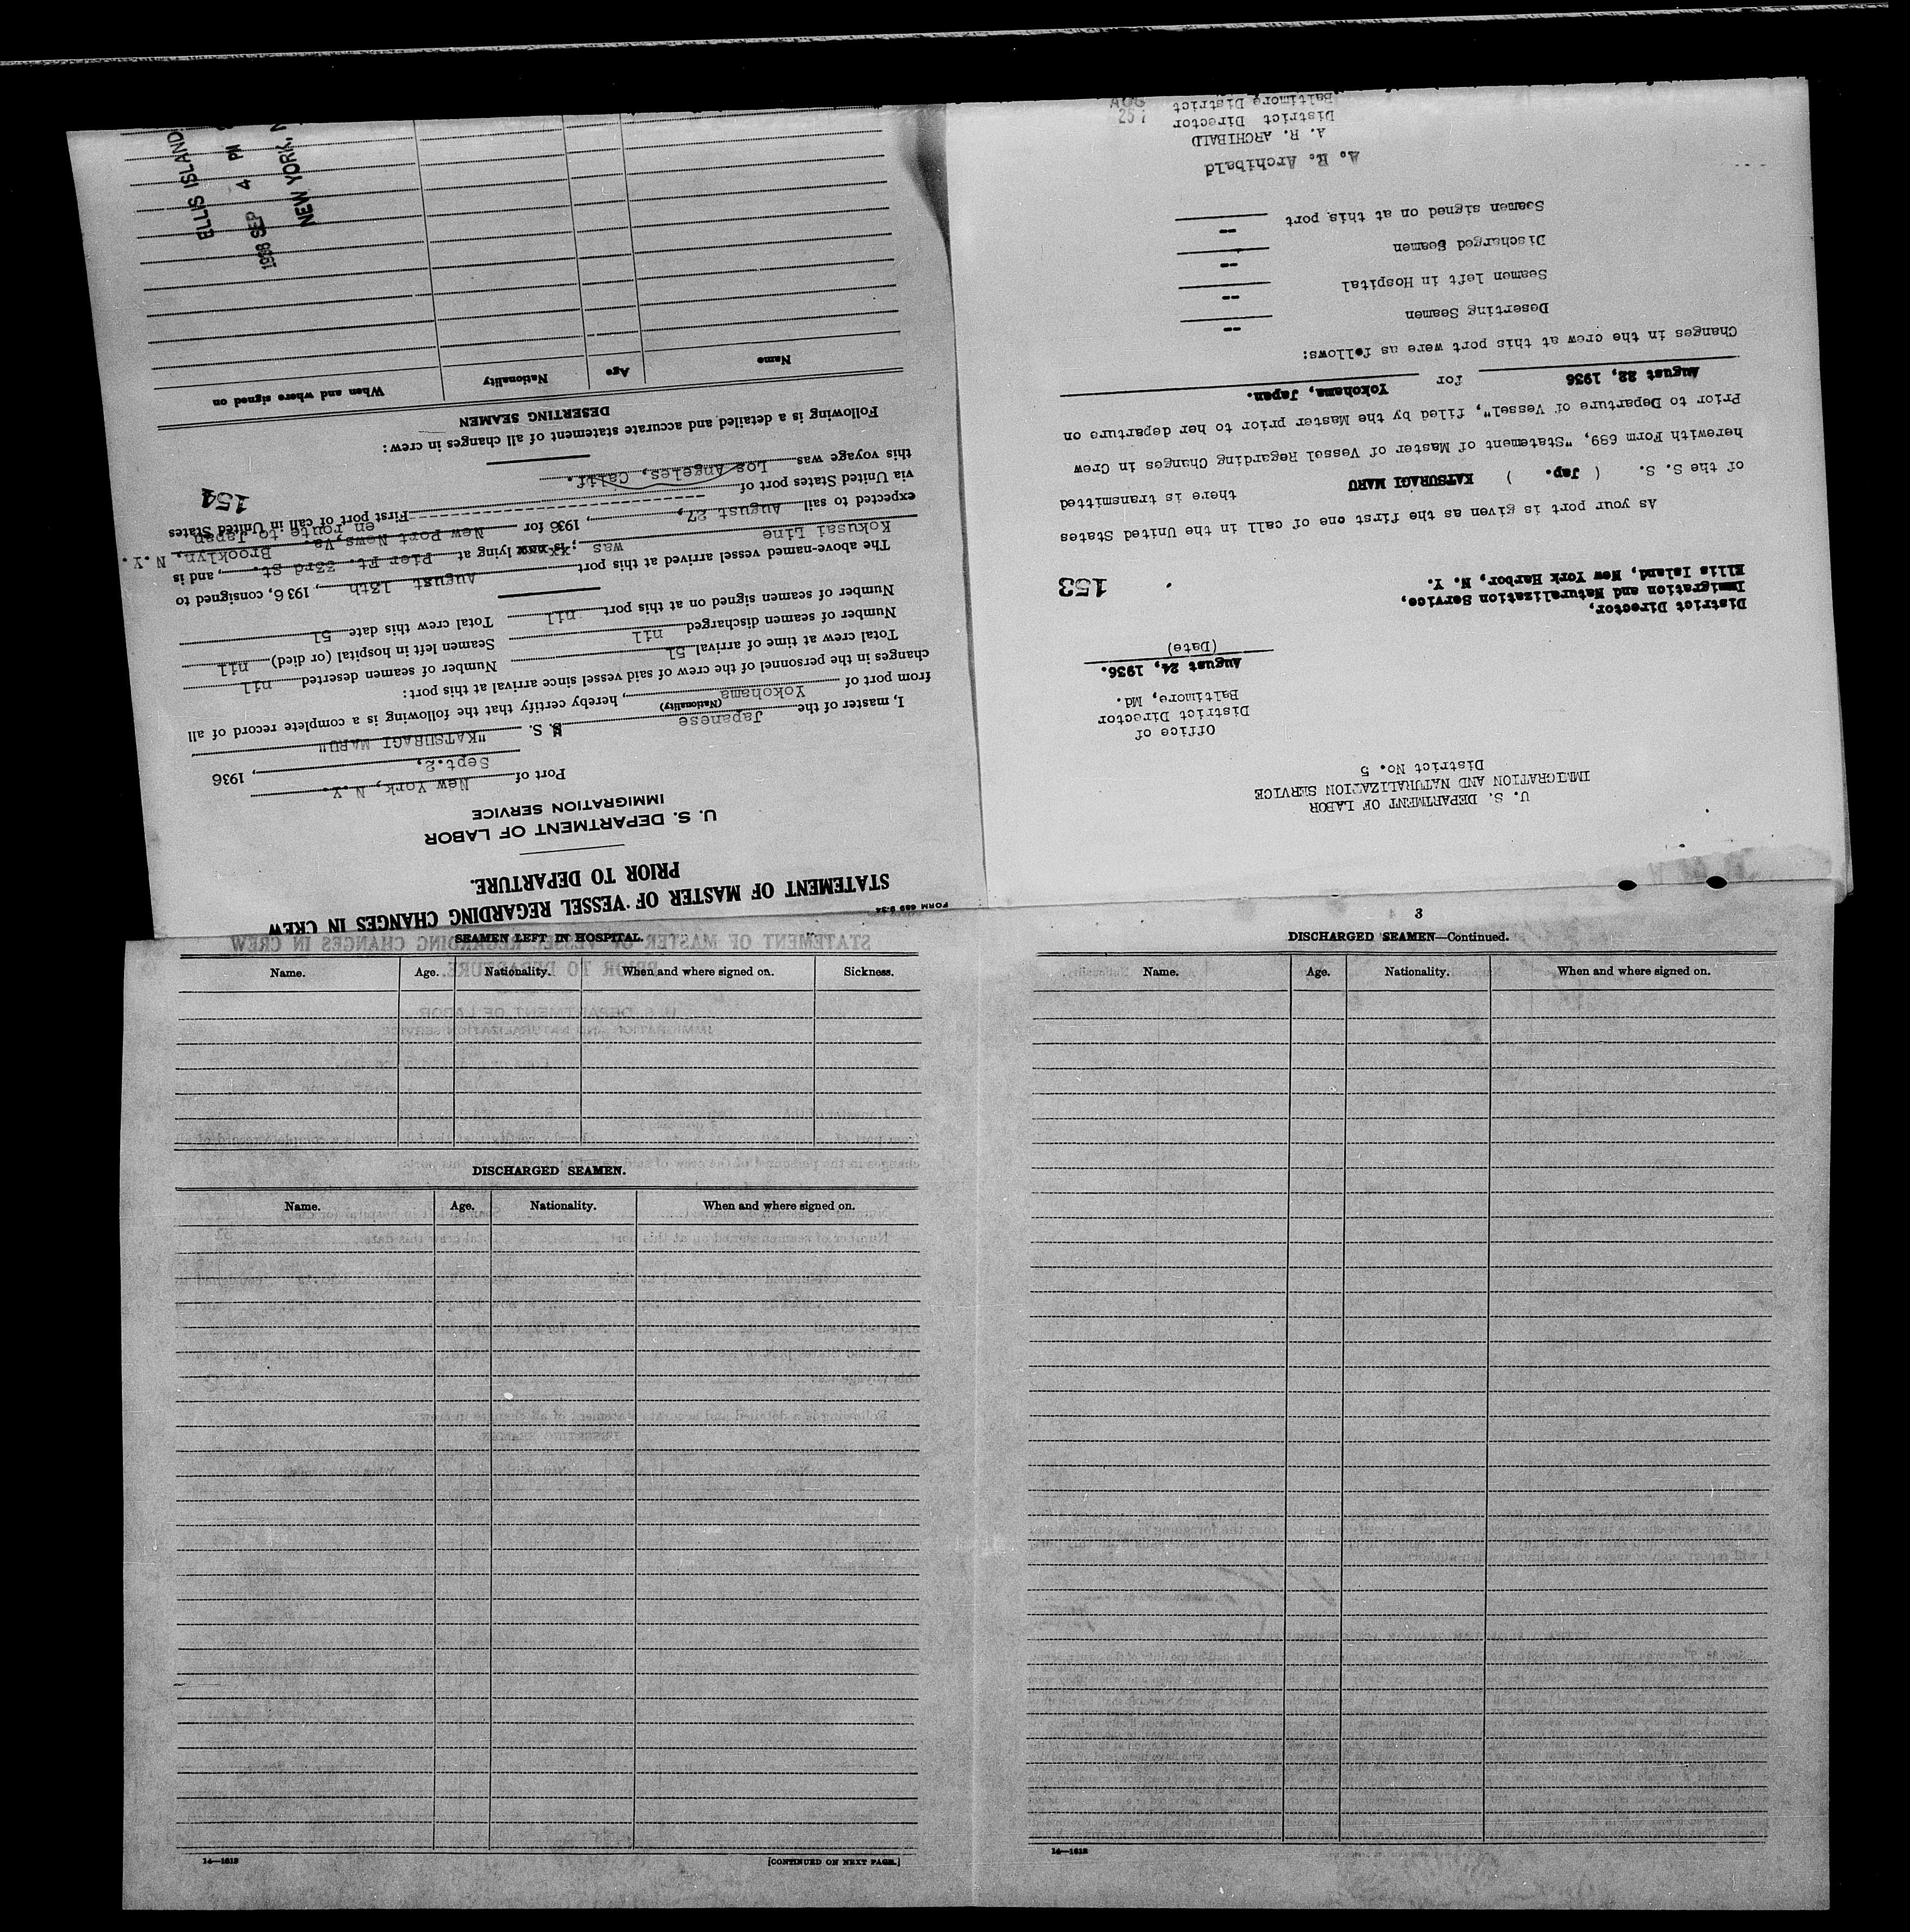 STATEMENT OF MASTER OF VESSEL REGARDING CHANGES IN CREW
PRIOR TO DEPARTURE.
U. S. DEPARTMENT OF LABOR
IMMIGRATION SERVICE
Port of New York, N.Y.
Sept. 2, , 1936
I, master of the Japanese S. S. "KATSURAGI MARU"
(Nationality)
from port of Yokohama, hereby certify that the following is a complete record of all
changes in the personnel of the crew of said vessel since arrival at this port:
Total crew at time of arrival 51 Number of seamen deserted nil
Number of seamen discharged nil Seamen left in hospital (or died) nil
Number of seamen signed on at this port nil Total crew this date 51
The above-named vessel arrived at this port August 13th, 1936, consigned to
Kokusai Line was ; is now lying at Pier Ft. 33rd St., and is
Brooklyn, N.Y.
expected to sail August 27, , 1936 for New Port News, Va.
en route to Japan
via United States port of First port of call in United States
this voyage was Los Angeles, Calif. 154
Following is a detailed and accurate statement of all changes in crew:
DESERTING SEAMEN
Name Age Nationality When and where signed on
ELLIS ISLAND
1936 SEP 4 PM
NEW YORK, N
FORM 689 9-34
U. S. DEPARTMENT OF LABOR
IMMIGRATION AND NATURALIZATION SERVICE
District No. 5
Office of
District Director
Baltimore, Md.
August 24, 1936.
(Date)
District Director,
Immigration and Naturalization Service,
Ellis Island, New York Harbor, N. Y.
153
As your port is given as the first one of call in the United States
of the S. S. ( Jap. ) KATSURAGI MARU there is transmitted
herewith Form 689, "Statement of Master of Vessel Regarding Changes in Crew
Prior to Departure of Vessel", filed by the Master prior to her departure on
August 22, 1936 for Yokohama, Japan.
Changes in the crew at this port were as follows:
Deserting Seamen --
Seamen left in Hospital --
Discharged Seamen --
Seamen signed on at this port --
A. R. Archibald
A. R. ARCHIBALD
District Director
Baltimore District
AUG
25
SEAMEN LEFT IN HOSPITAL.
Name. Age. Nationality. When and where signed on. Sickness.
DISCHARGED SEAMEN.
Name. Age. Nationality. When and where signed on.
14—1618 [CONTINUED ON NEXT PAGE.]
3
DISCHARGED SEAMEN—Continued.
Name. Age. Nationality. When and where signed on.
14—1618